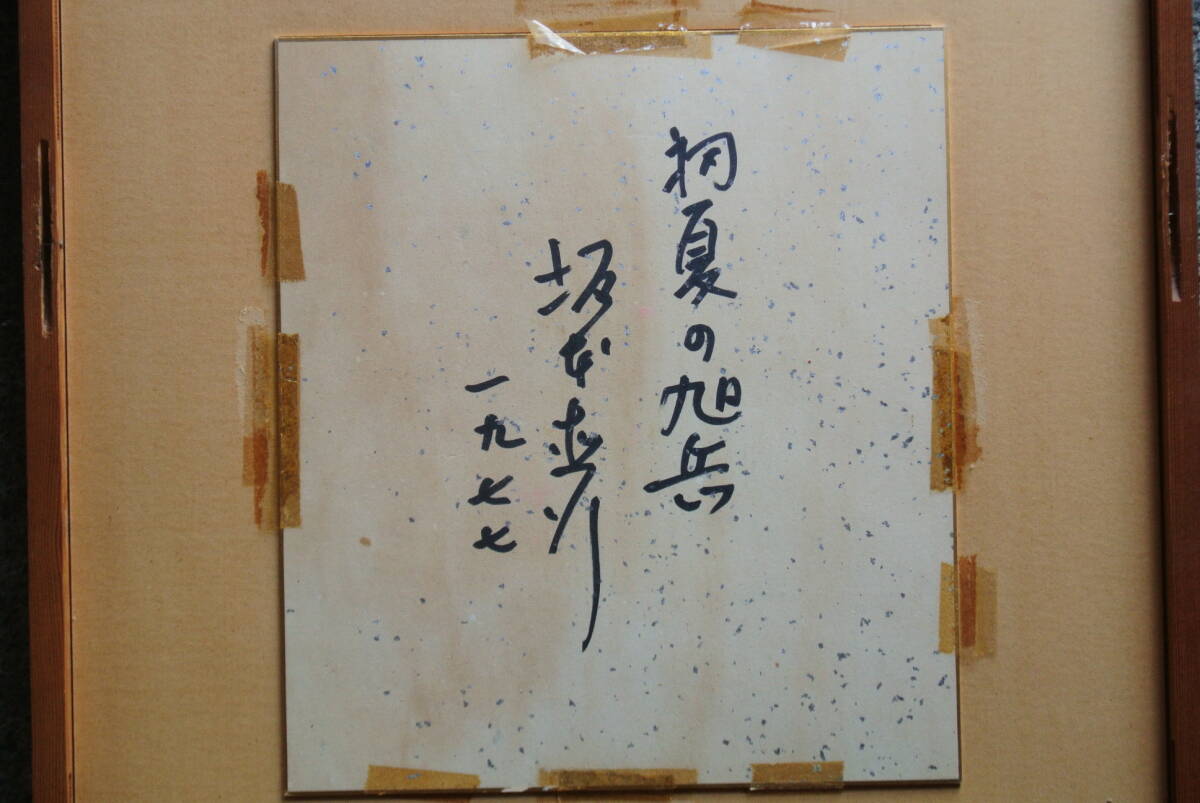 初夏の旭岳
坂本直行
一九七七